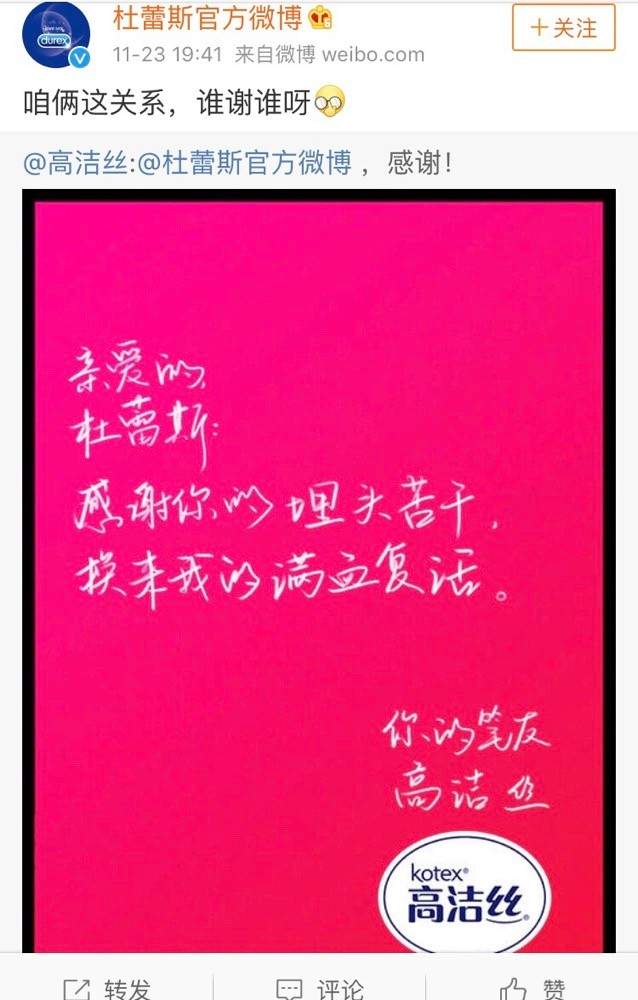 杜蕾斯官方微博
+关注
11-23 19:41 来自微博 weibo.com
咱俩这关系，谁谢谁呀
@高洁丝:@杜蕾斯官方微博 ，感谢！
亲爱的
杜蕾斯:
感谢你的埋头苦干，
换来我的满血复活。
你的笔友
高洁丝
kotex®
高洁丝®
转发
评论
赞